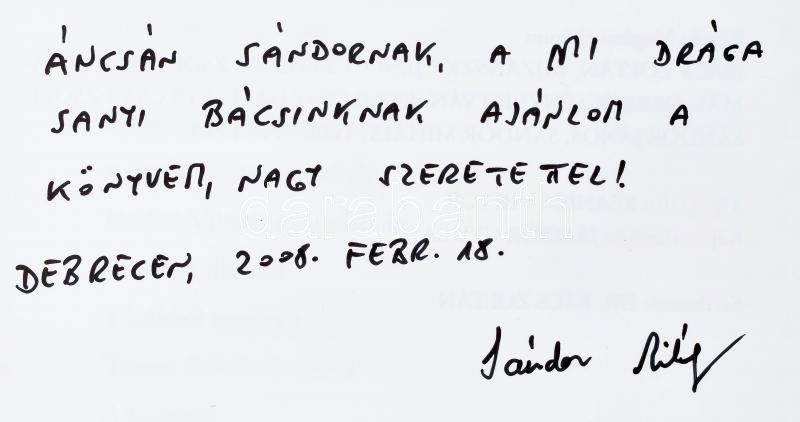 ÁNCSÁN SÁNDORNAK, A MI DRÁGA
SANYI BÁCSINKNAK AJÁNLOM A
KÖNYVEM, NAGY SZERETETTEL!
darabanth
DEBRECEN, 2008. FEBR. 18.
Sándor Mihály